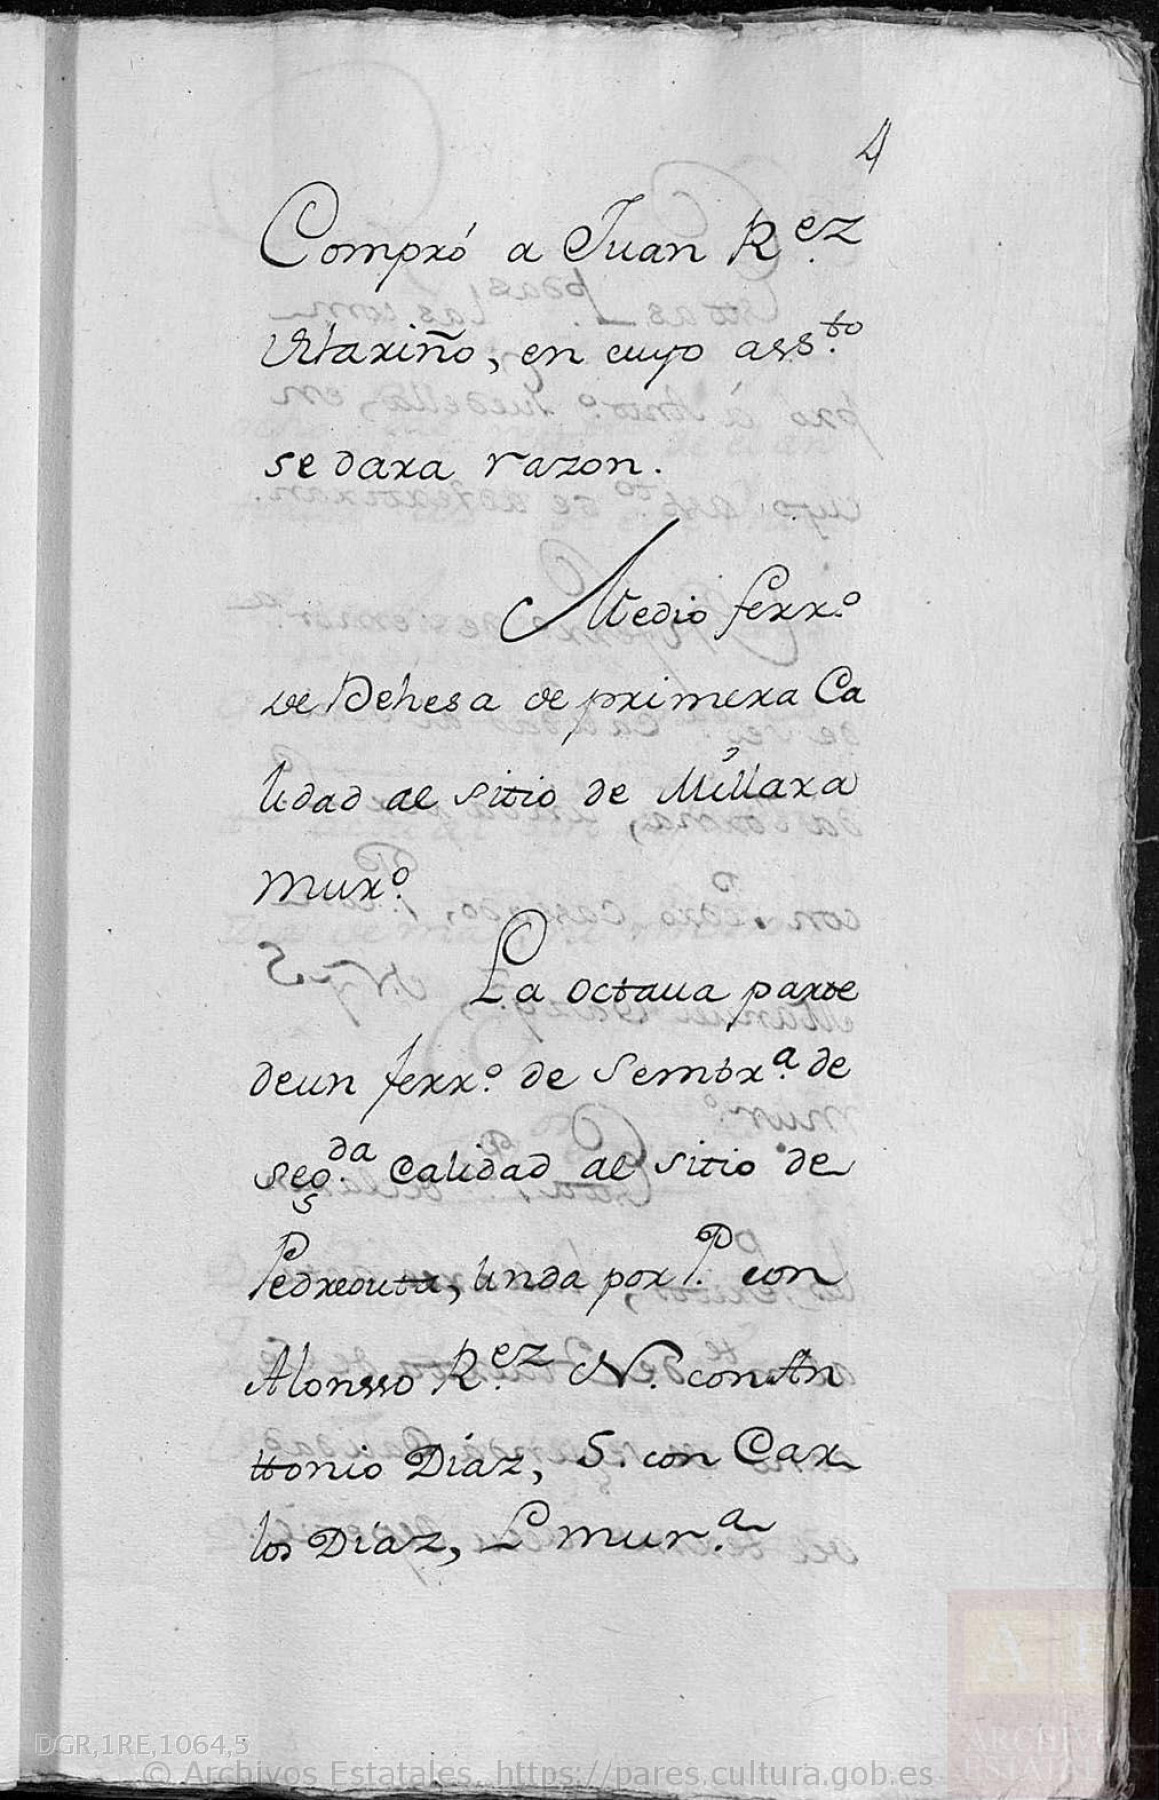 4
Compró a Juan R.ez
Mariño, en cuyo ass.to
se dara razon.
Medio ferr.o
de Dehesa de primera Ca
lidad al sitio de Millara
mur.o
La octaua parte
deun ferr.o de Sembr.a de
seg.da Calidad al sitio de
Pedreouta, linda por P. con
Alonsso R.ez N. con An
ttonio Diaz, S. con Car
los Diaz, L mur.a
DGR,1RE,1064,5
© Archivos Estatales, https://pares.cultura.gob.es
ARCHIVOS
ESTATALES